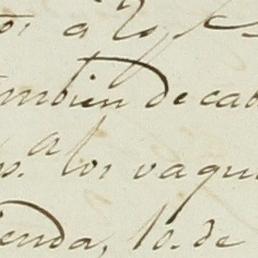 á
tambien de cab
a los vaqu
ienda, 10. de